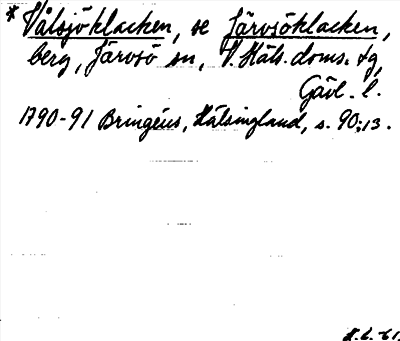 * Vålsjöklacken, se Järvsöklacken,
berg, Järvsö sn, V. Häls. doms. tg,
Gävl. l.
1790-91 Bringéus, Hälsingland, s. 90; 13.